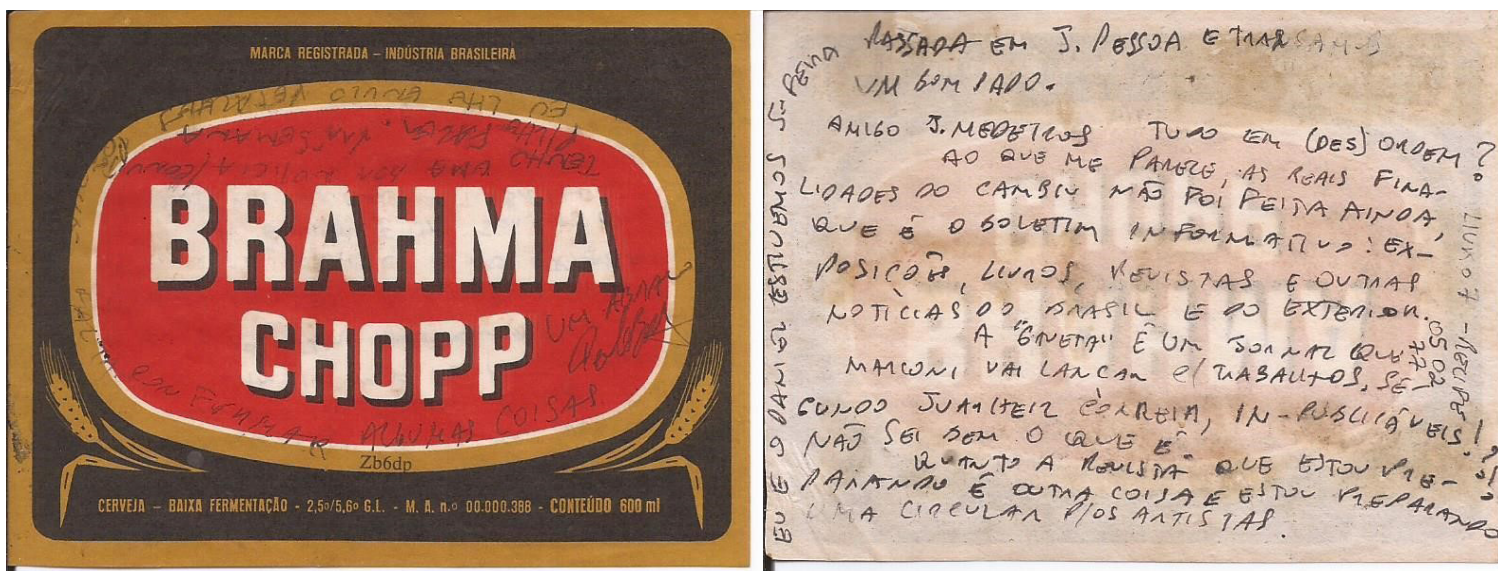 MARCA REGISTRADA – INDÚSTRIA BRASILEIRA
EU LHE ENVIO DETALHES
P/LHE FALAR. NA SEMANA
TENHO UMA BOA NOTÍCIA
BRAHMA
CHOPP
UM ABRAÇO
CONFIRMAR ALGUMAS COISAS.
Zb6dp
CERVEJA – BAIXA FERMENTAÇÃO - 2,5º/5,6º G.L. - M. A. n.º 00.000.388 - CONTEÚDO 600 ml
EU E O DANIEL ESTIVEMOS 5ª FEIRA
PASSADA EM J. PESSOA E TRANSAMOS
UM BOM PAPO.
AMIGO J. MEDEIROS TUDO EM (DES)ORDEM?
AO QUE ME PARECE, AS REAIS FINA-
LIDADES DO CAMBIU NÃO FOI FEITA AINDA,
QUE É O BOLETIM INFORMATIVO: EX-
POSIÇÕES, LIVROS, REVISTAS E OUTRAS
NOTÍCIAS DO BRASIL E DO EXTERIOR.
A "GAVETA" É UM JORNAL QUE
MARCONI VAI LANÇAR C/ TRABALHOS, SE-
GUNDO JUALHEIZ CORREIA, IN-PUBLICÁVEIS!
NÃO SEI BEM O QUE É.
QUANTO A REVISTA QUE ESTOU PRE-
PARANDO É OUTRA COISA E ESTOU PREPARANDO
UMA CIRCULAR P/OS ARTISTAS.
LIVRO 7 - RECIFE
05 02
77